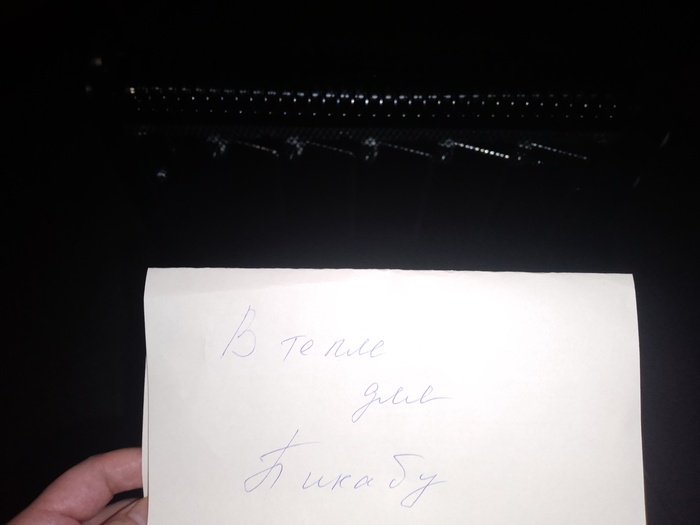 В тепле
для
Пикабу